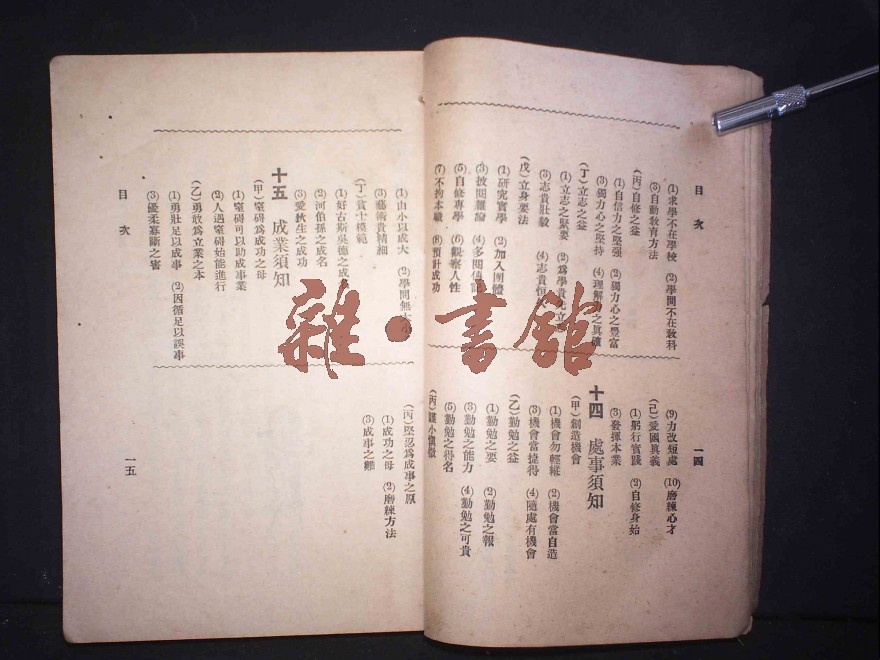 目次
一四
(1)求學不在學校 (2)學問不在敎科
(3)自動敎育方法
(丙)自修之益
(1)自信力之堅强 (2)獨力心之豐富
(3)獨力心之堅持 (4)理解 之眞確
(丁)立志之益
(1)立志之緊要 (2)爲學貴 立
(3)志貴壯毅 (4)志貴恒
(戊)立身要法
(1)研究實學 (2)加入團體
(3)披閱雜論 (4)多閱傳記
(5)自修專學 (6)觀察人性
(7)不拘本職 (8)預計成功
(9)力改短處 (10)磨練心才
(己)愛國眞義
(1)躬行實踐 (2)自修身始
(3)發揮本業
十四 處事須知
(甲)創造機會
(1)機會勿輕縱 (2)機會當自造
(3)機會當捷得 (4)隨處有機會
(乙)勤勉之益
(1)勤勉之要 (2)勤勉之報
(3)勤勉之能力 (4)勤勉之可貴
(5)勤勉之得名
(丙)謹小愼微
(1)由小以成大 (2)學問無大小
(3)藝術貴精細
(丁)賞士模範
(1)好古斯吳德之成名
(2)河伯孫之成名
(3)愛狄生之成功
十五 成業須知
(甲)窒碍爲成功之母
(1)窒碍可以助成事業
(2)人遇窒碍始能進行
(乙)勇敢爲立業之本
(1)勇壯足以成事 (2)因循足以誤事
(3)優柔寡斷之害
(丙)堅忍爲成事之原
(1)成功之母 (2)磨練方法
(3)成事之難
目次
一五
雜·書館